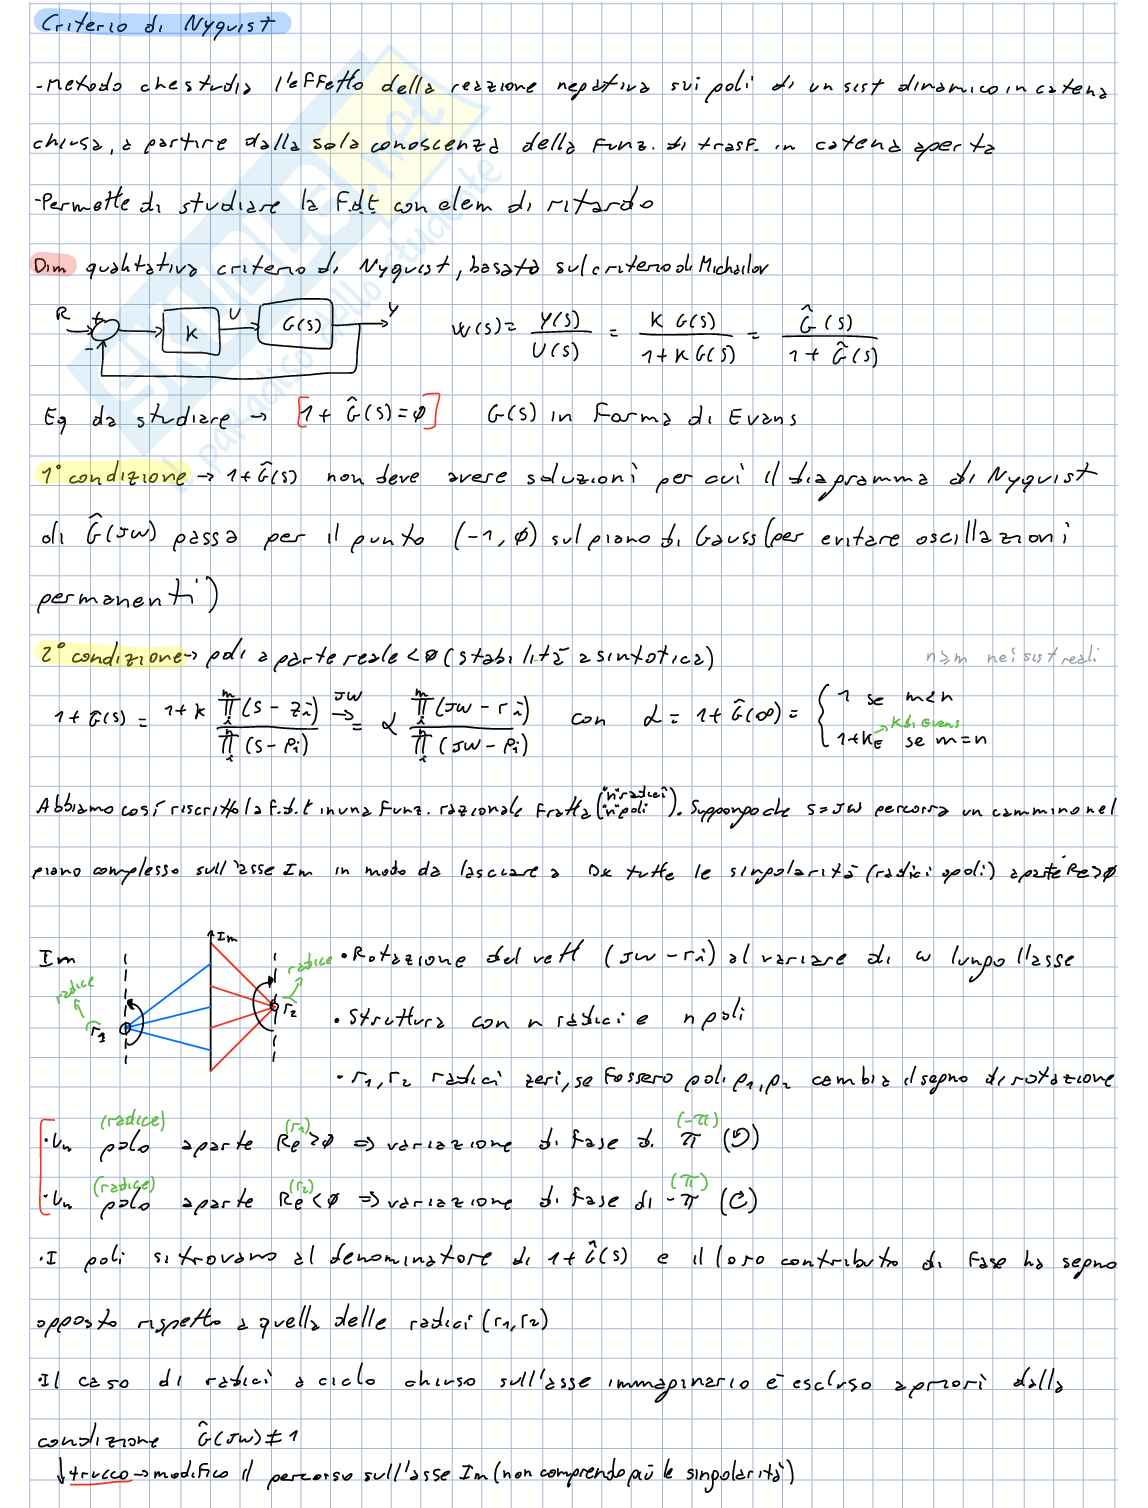 Criterio di Nyquist
-Metodo che studia l'effetto della reazione negativa sui poli di un sist dinamico in catena
chiusa, a partire dalla sola conoscenza della funz. di trasf. in catena aperta
-Permette di studiare la F.d.t con elem di ritardo
Dim qualitativa criterio di Nyquist, basata sul criterio di Michailov
R + - K U G(s) Y W(s) = Y(s)/U(s) = K G(s)/1+K G(s) = Ĝ(s)/1+Ĝ(s)
Eq da studiare → [1+Ĝ(s)=∅] G(s) in Forma di Evans
1° condizione → 1+Ĝ(s) non deve avere soluzioni per cui il diagramma di Nyquist
di Ĝ(jw) passa per il punto (-1,∅) sul piano di Gauss (per evitare oscillazioni
permanenti)
2° condizione → poli a parte reale <∅ (stabilità asintotica) n≥m nei sist reali
1+Ĝ(s) = 1+K ∏(s-zi)/∏(s-pi) jw → = α ∏(jw-ri)/∏(jw-pi) con α = 1+Ĝ(∞) = { 1 se m<n
1+KE se m=n K di Evans
Abbiamo così riscritto la F.d.t in una Funz. razionale Fratta ("n" radici "n" poli). Suppongo che s=jw percorra un cammino nel
piano complesso sull'asse Im in modo da lasciare a Dx tutte le singolarità (radici o poli) a parte Re>∅
Im Im radice r1 radice r2 • Rotazione del vett (jw-ri) al variare di w lungo l'asse
• Struttura con n radici e n poli
• r1, r2 radici zeri, se Fossero poli p1, p2 cambia il segno di rotazione
(radice) (r2) (-π)
•Un polo a parte Re>∅ ⇒ variazione di fase di π
(radice) (r2) (π)
•Un polo a parte Re<∅ ⇒ variazione di fase di -π
•I poli si trovano al denominatore di 1+Ĝ(s) e il loro contributo di Fase ha segno
opposto rispetto a quella delle radici (r1, r2)
•Il caso di radici a ciclo chiuso sull'asse immaginario è escluso a priori dalla
condizione Ĝ(jw)≠1
↓ trucco → modifico il percorso sull'asse Im (non comprendo più le singolarità)